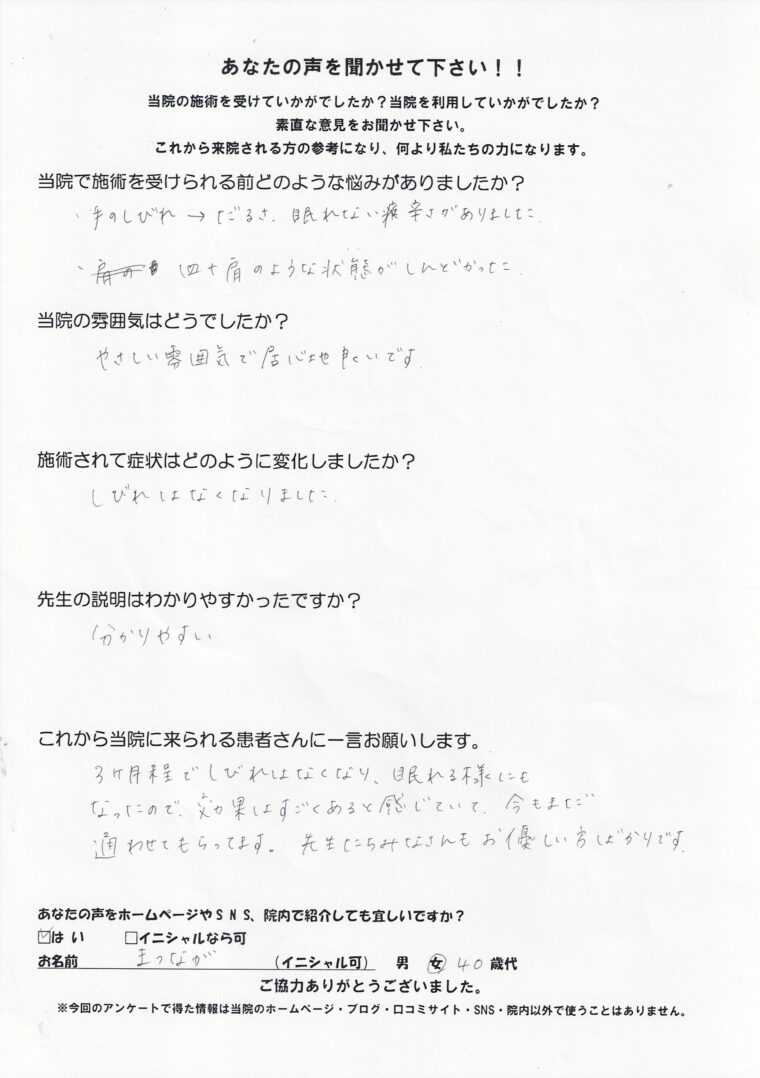 あなたの声を聞かせて下さい！！
当院の施術を受けていかがでしたか？当院を利用していかがでしたか？
素直な意見をお聞かせ下さい。
これから来院される方の参考になり、何より私たちの力になります。
当院で施術を受けられる前どのような悩みがありましたか？
・手のしびれ → だるさ、眠れない 辛さがありました。
・四十肩のような状態がしんどかった。
当院の雰囲気はどうでしたか？
やさしい雰囲気で居心地良いです。
施術されて症状はどのように変化しましたか？
しびれはなくなりました。
先生の説明はわかりやすかったですか？
分かりやすい
これから当院に来られる患者さんに一言お願いします。
3ヶ月程でしびれはなくなり、眠れる様にも
なったので、効果はすごくあると感じていて、今もまだ
通わせてもらってます。先生たちみなさんもお優しい方ばかりです。
あなたの声をホームページやSNS、院内で紹介しても宜しいですか？
☑はい □イニシャルなら可
お名前 まつなが （イニシャル可） 男 女 40歳代
ご協力ありがとうございました。
※今回のアンケートで得た情報は当院のホームページ・ブログ・口コミサイト・SNS・院内以外で使うことはありません。